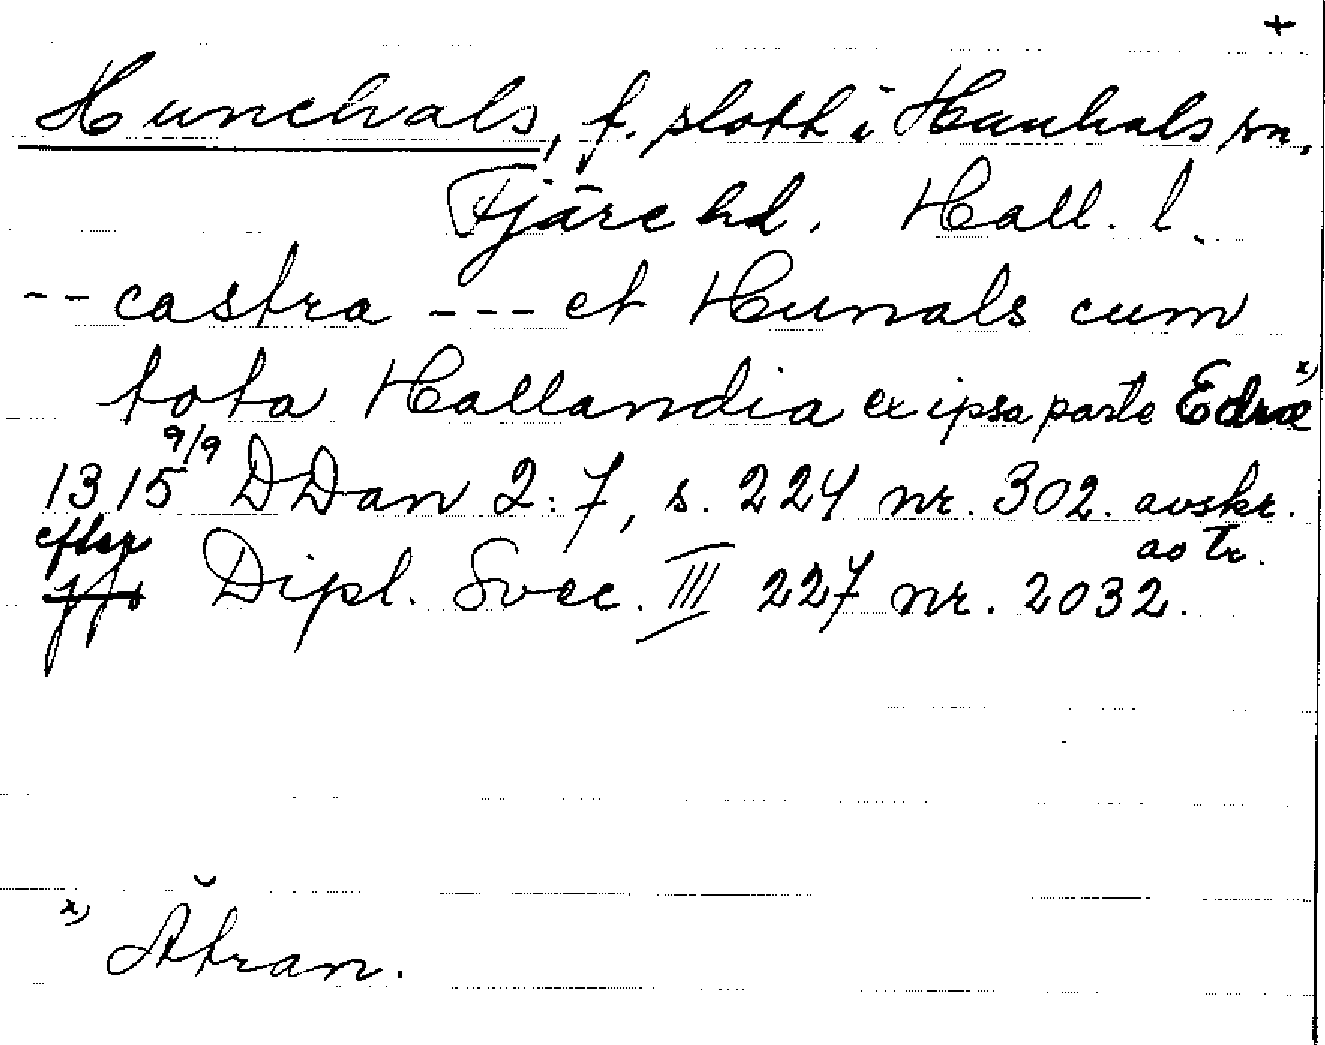 +
Hunehals, f. slott i Hanhals sn,
Fjäre hd. Hall. l.
-- castra --- et Hunals cum
tota Hallandia ex ipsa parte Edræ x)
1315 9/9 DDan 2:7, s. 224 nr. 302. avskr.
efter ao Tr.
Dipl. Svec. III 227 nr. 2032.
x) Ätran.